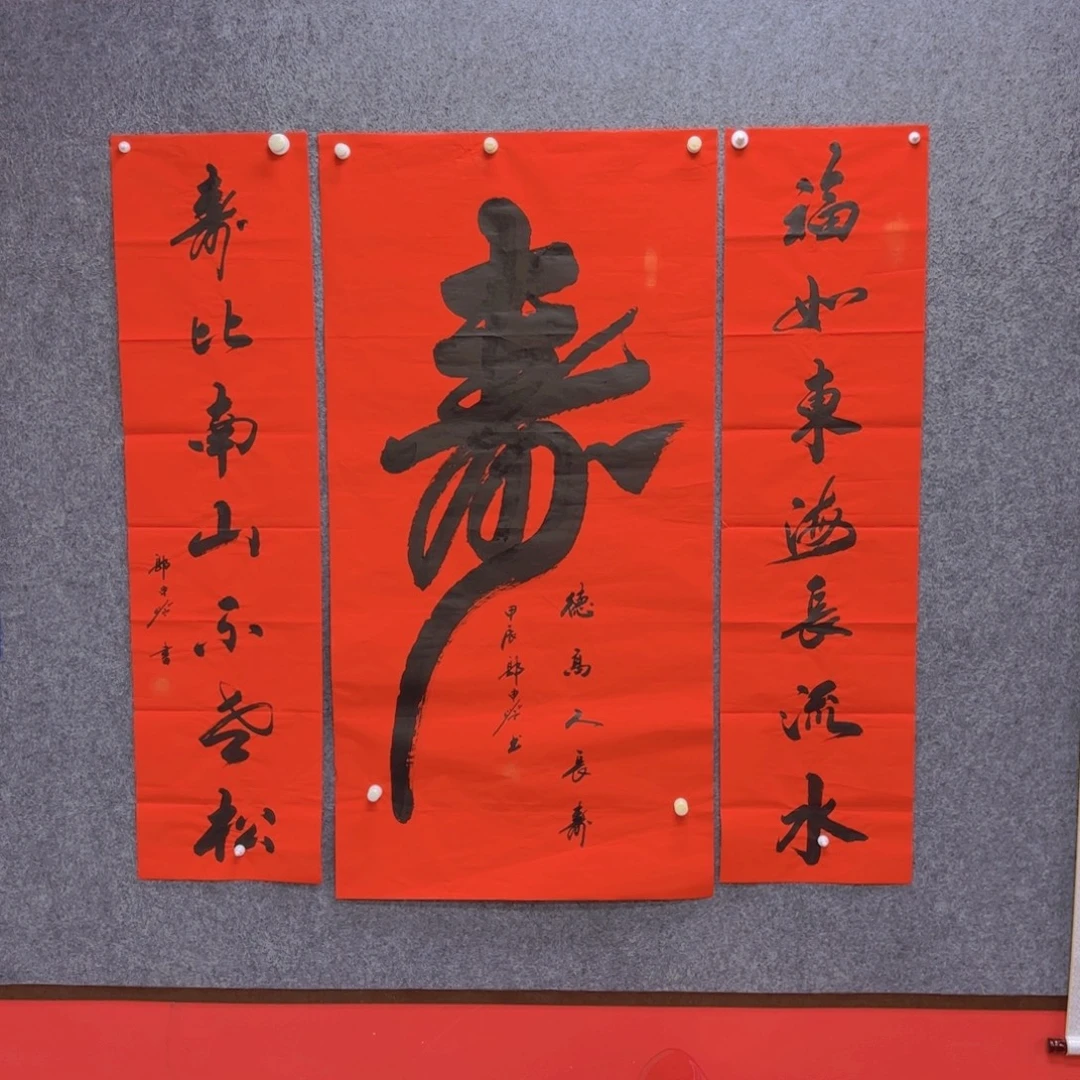 福如東海長流水
壽
德高人長壽
甲辰
壽比南山不老松
書